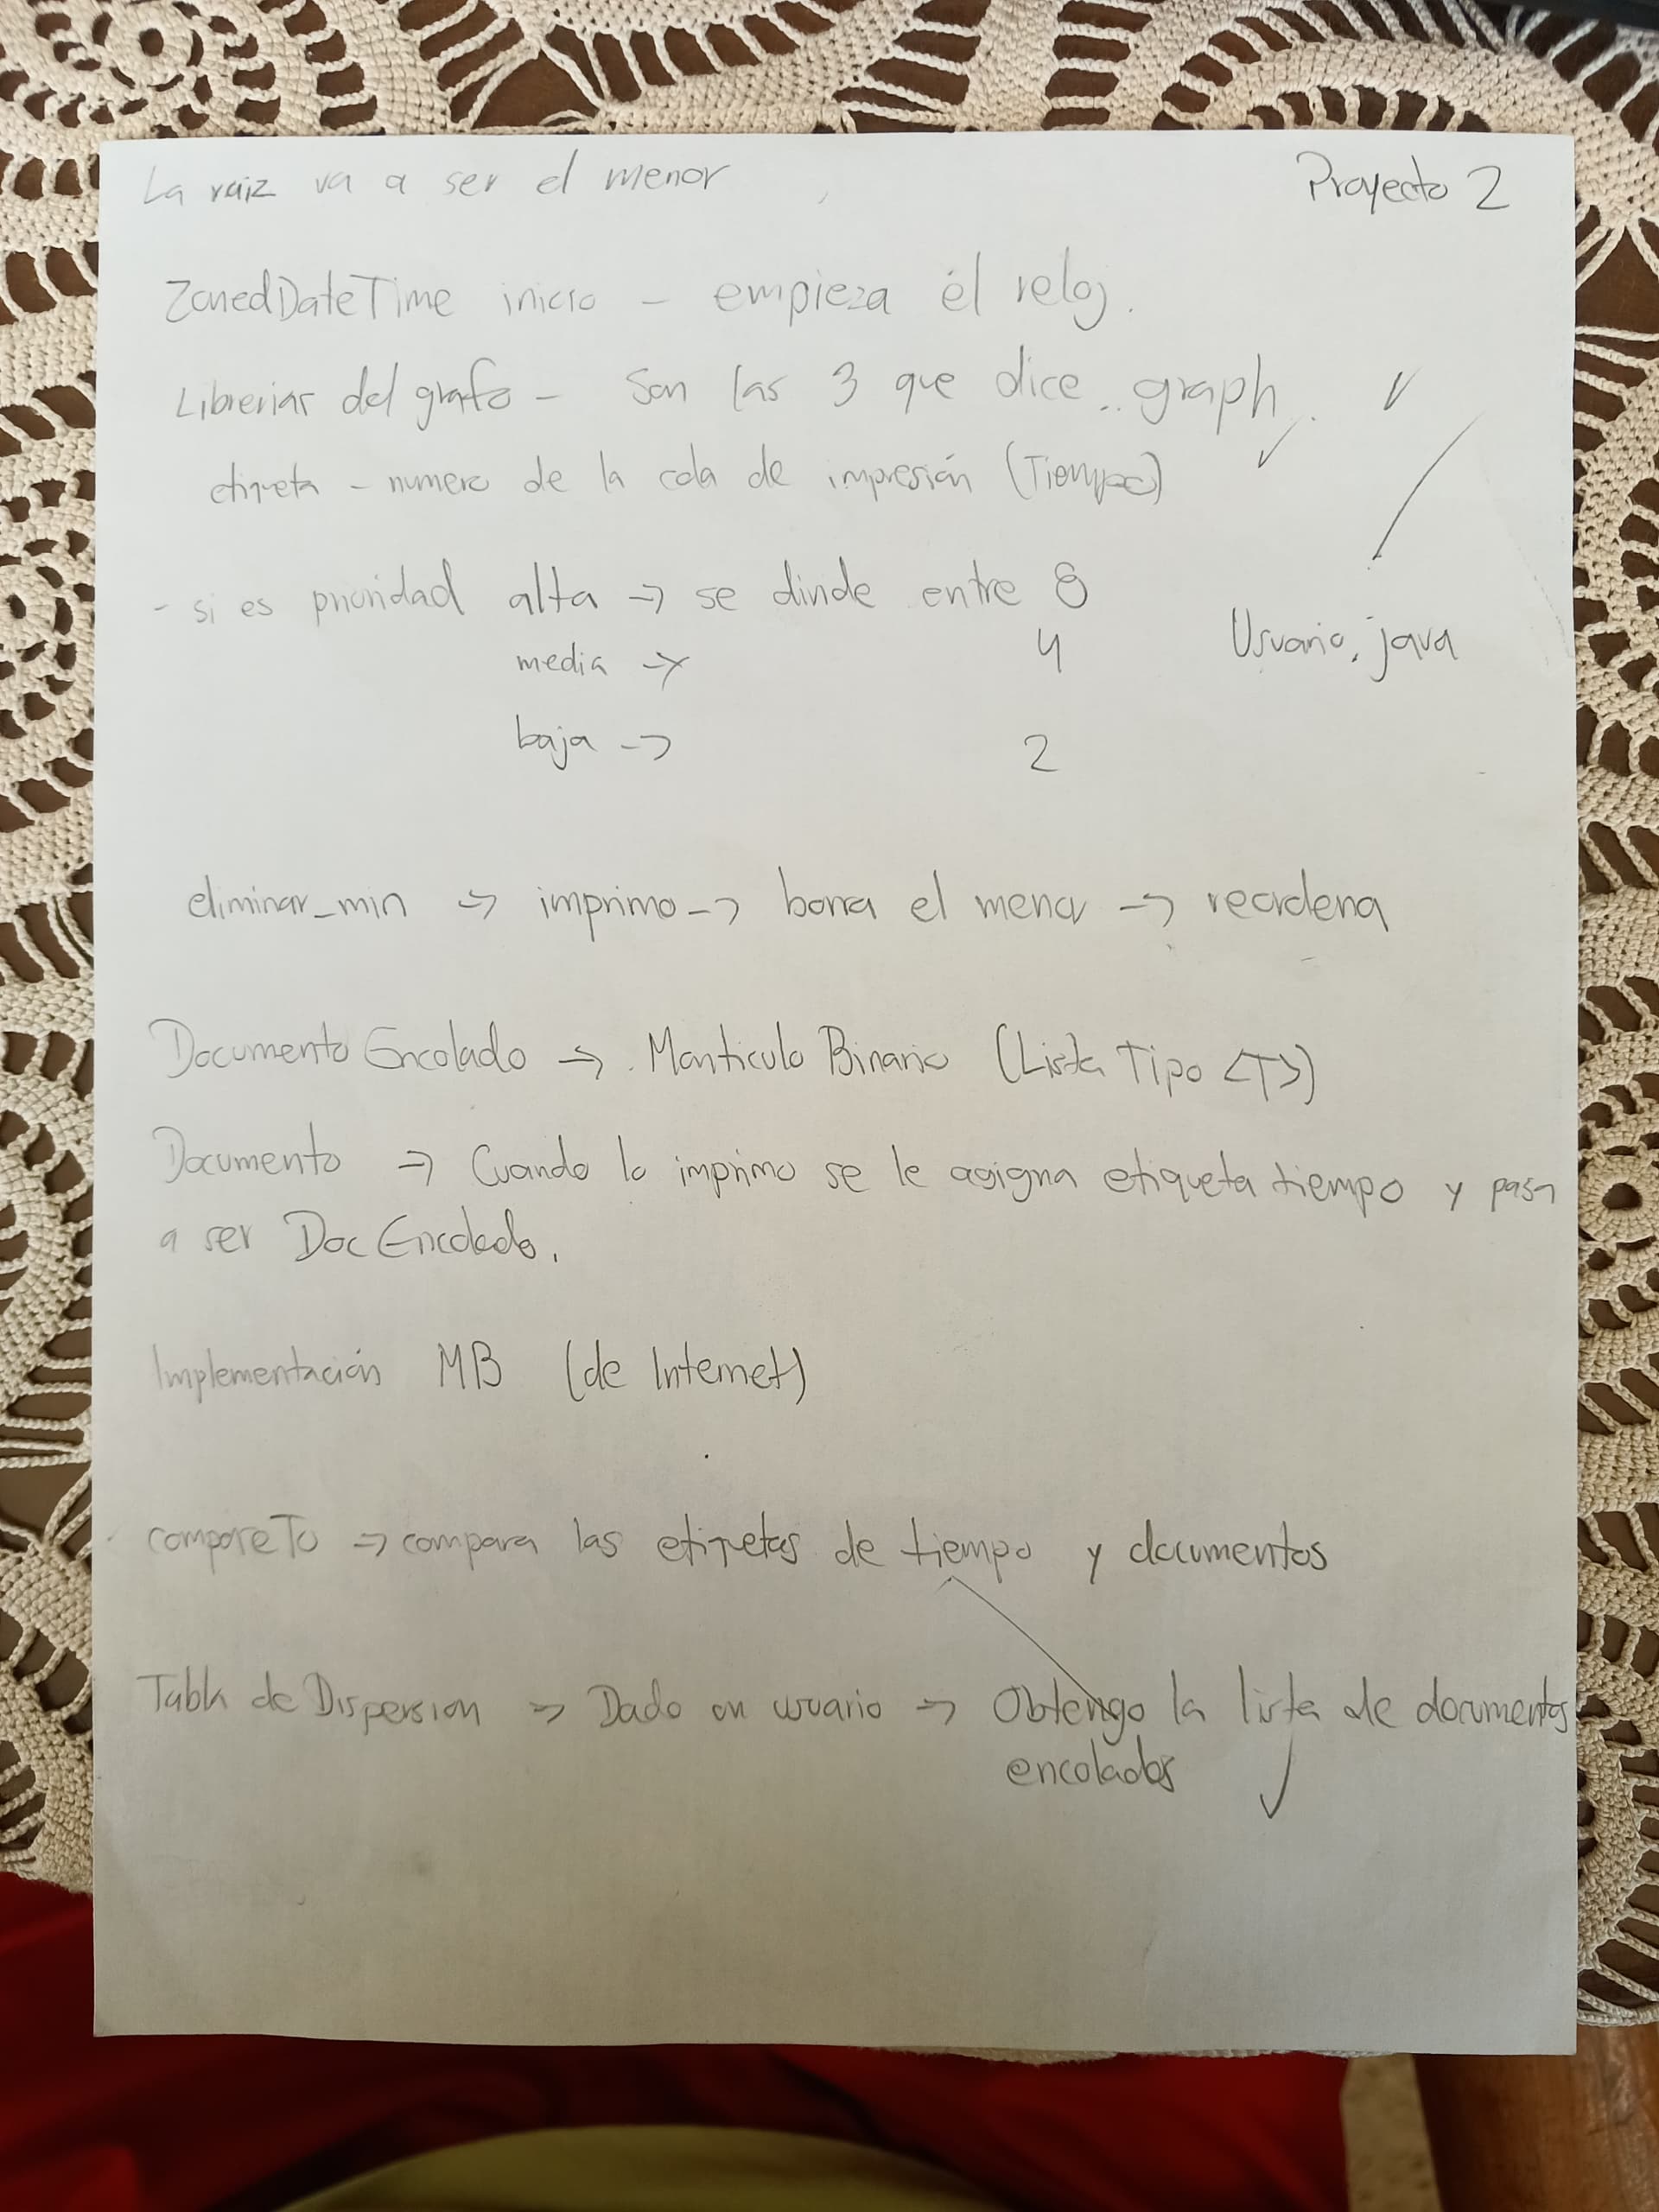 La raiz va a ser el menor
Proyecto 2
ZonedDateTime inicio - empieza el reloj.
Librerias del grafo - Son las 3 que dice .. graph.
etiqueta - numero de la cola de impresión (Tiempo)
- si es prioridad alta -> se divide entre 8
media -> 4
Usuario.java
baja -> 2
eliminar_min -> imprimo -> borra el menor -> reordena
Documento Encolado -> Monticulo Binario (Lista Tipo <T>)
Documento -> Cuando lo imprimo se le asigna etiqueta tiempo y pasa
a ser Doc Encolado.
Implementación MB (de Internet)
compareTo -> compara las etiquetas de tiempo y documentos
Tabla de Dispersion -> Dado un usuario -> Obtengo la lista de documentos
encolados